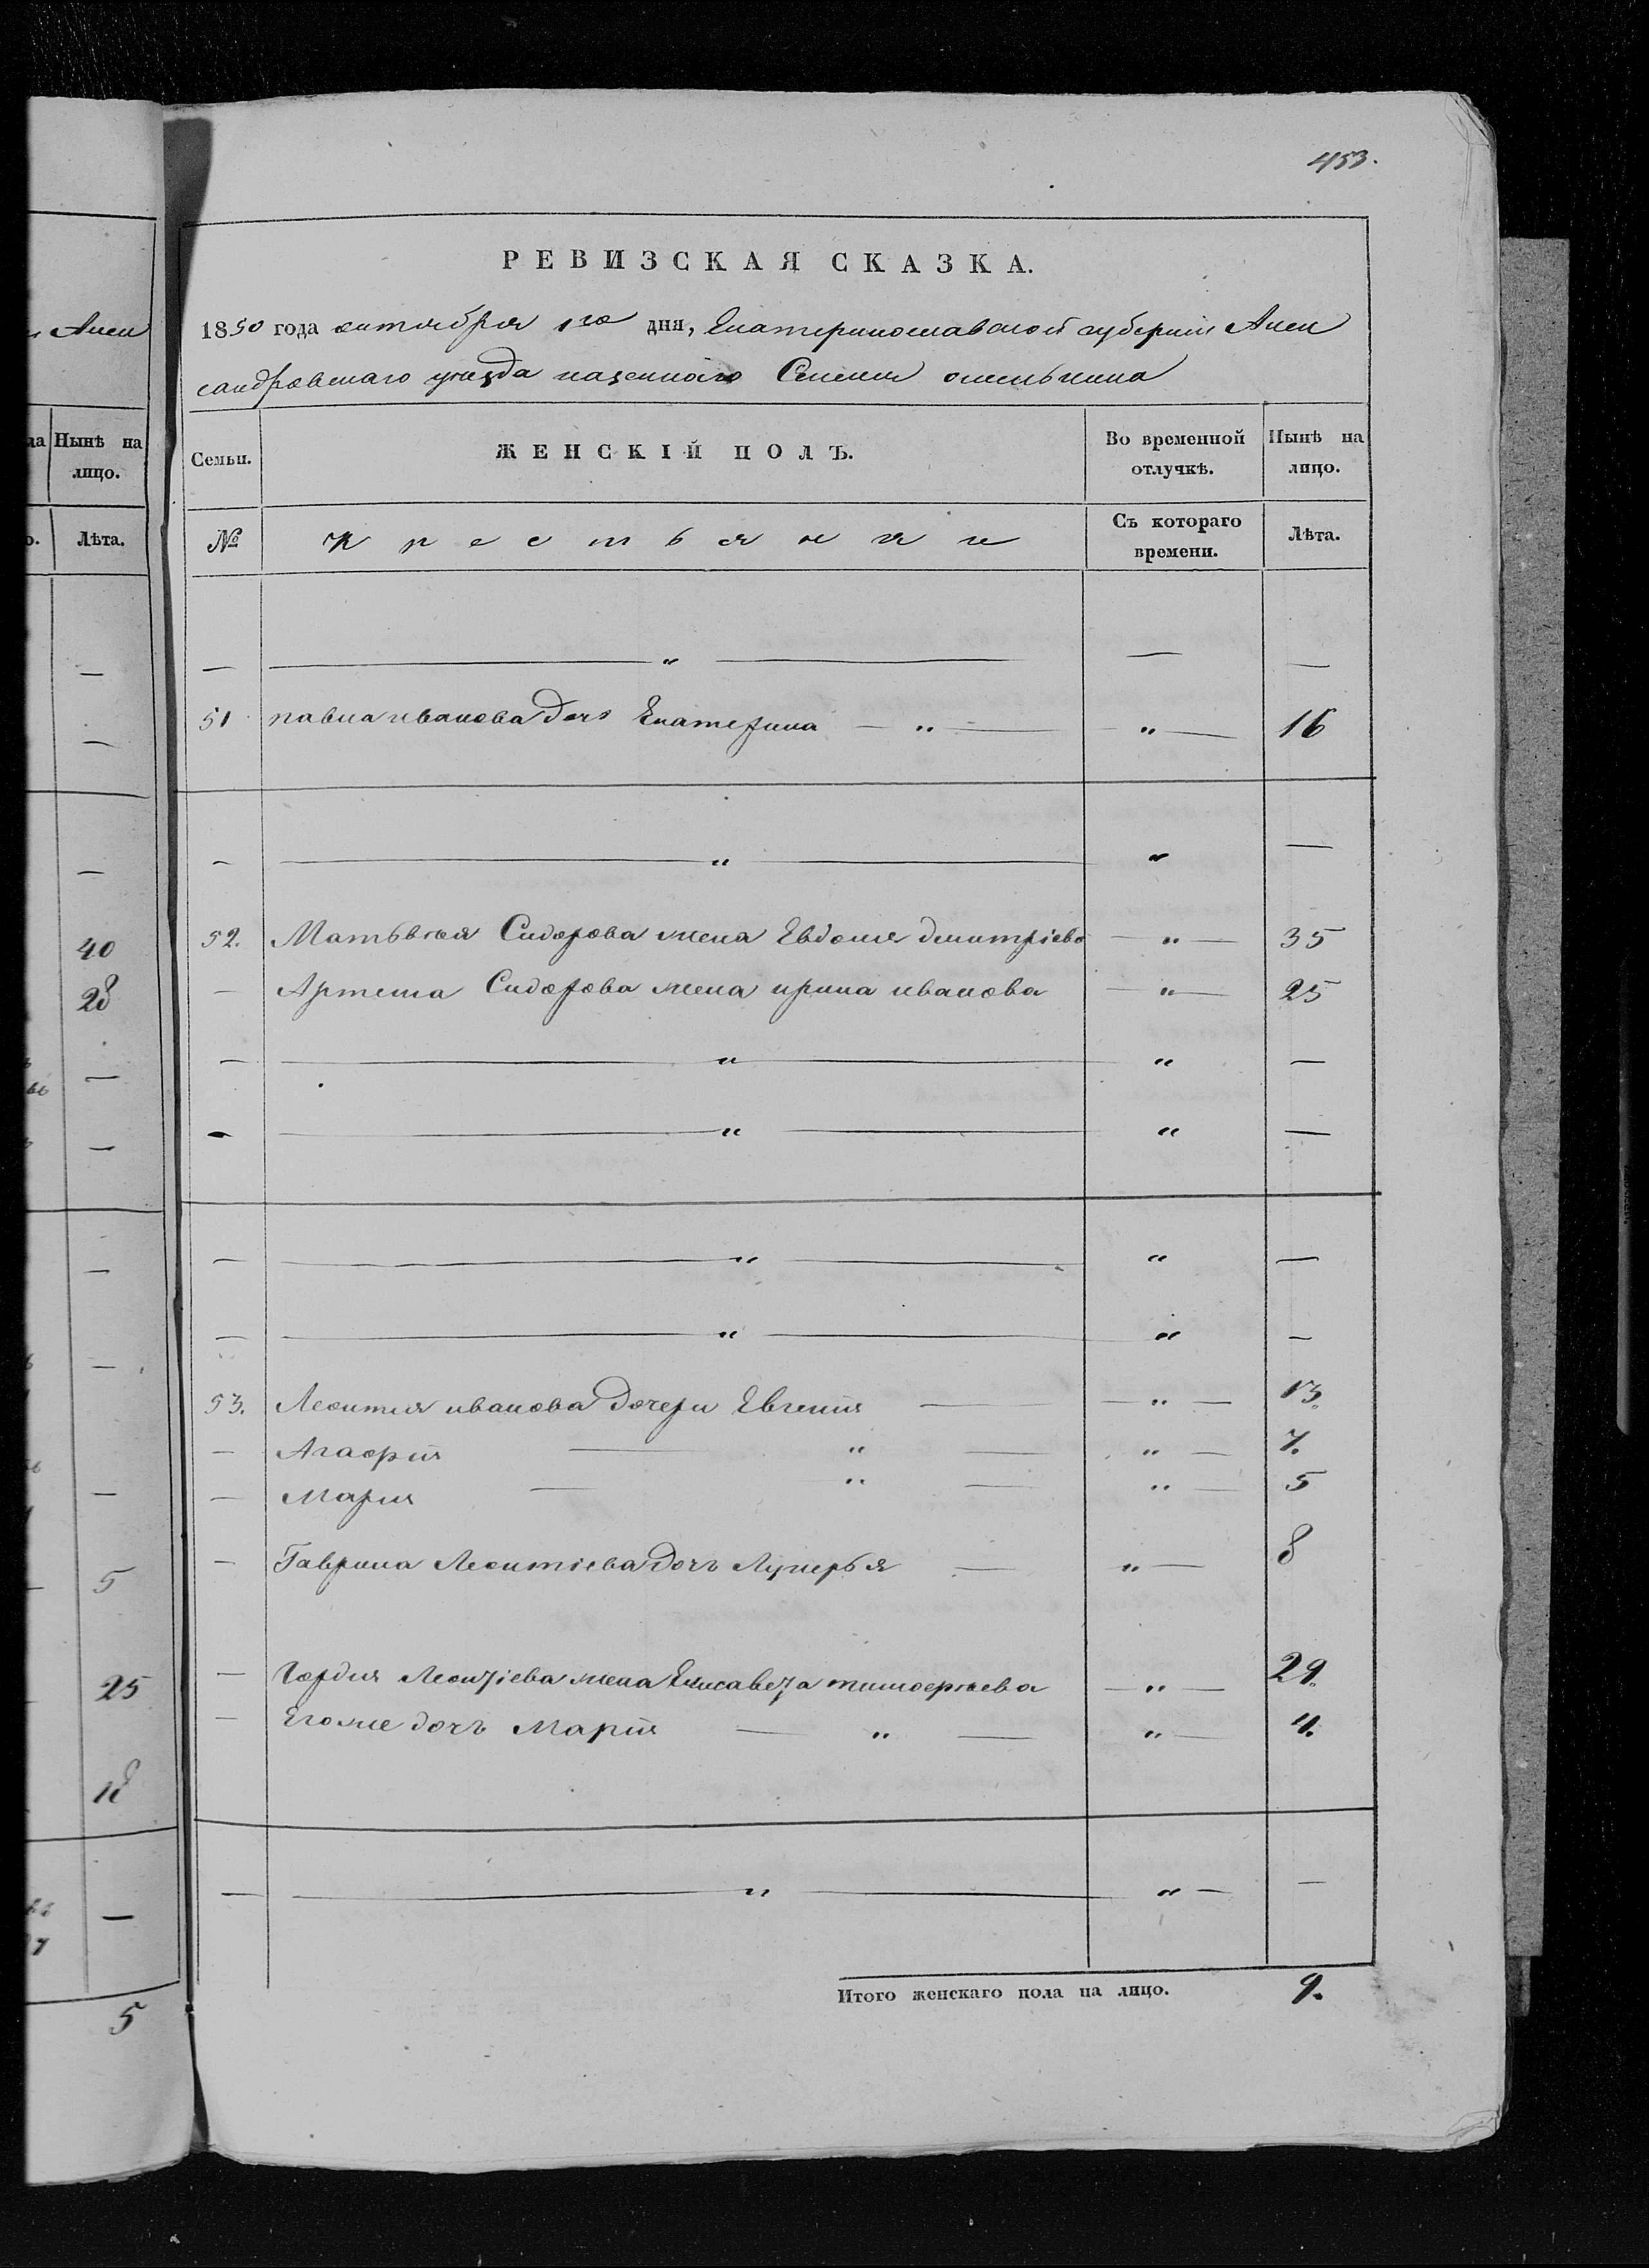 Алек
ла Нынѣ на
лицо.
о. Лѣта.
—
—
—
40
28
—
—
—
—
—
5
25
18
—
5
453.
РЕВИЗСКАЯ СКАЗКА.
1850 года октября 1го дня, Екатеринославской губернии Алек
сандровскаго уезда казенного Селения
Семьи. ЖЕНСКІЙ ПОЛЪ. Во временной отлучкѣ. Нынѣ на лицо.
№ Крестьянки Съ котораго времени. Лѣта.
— — " — — —
51 павла иванова дочь Екатерина — " — " — 16
— — " — " —
52. Матьвея Сидорова жена Евдокия дмитріева — " — 35
— Артема Сидорова жена ирина иванова — " — 25
— — " — " —
— — " — " —
— — " — " —
— — " — " —
53. Леонтия иванова дочери Евгенія — — " — 13.
— Агафія — " — " — 7.
— Мария — " — " — 5
— Гаврила Леонтіева дочь Лукерья — " — 8
— Гордия Леонтіева жена Елисавета тимофеева — " — 29.
— Его же дочь Марія — " — " — 4.
— — " — " — —
Итого женскаго пола на лицо. 9.